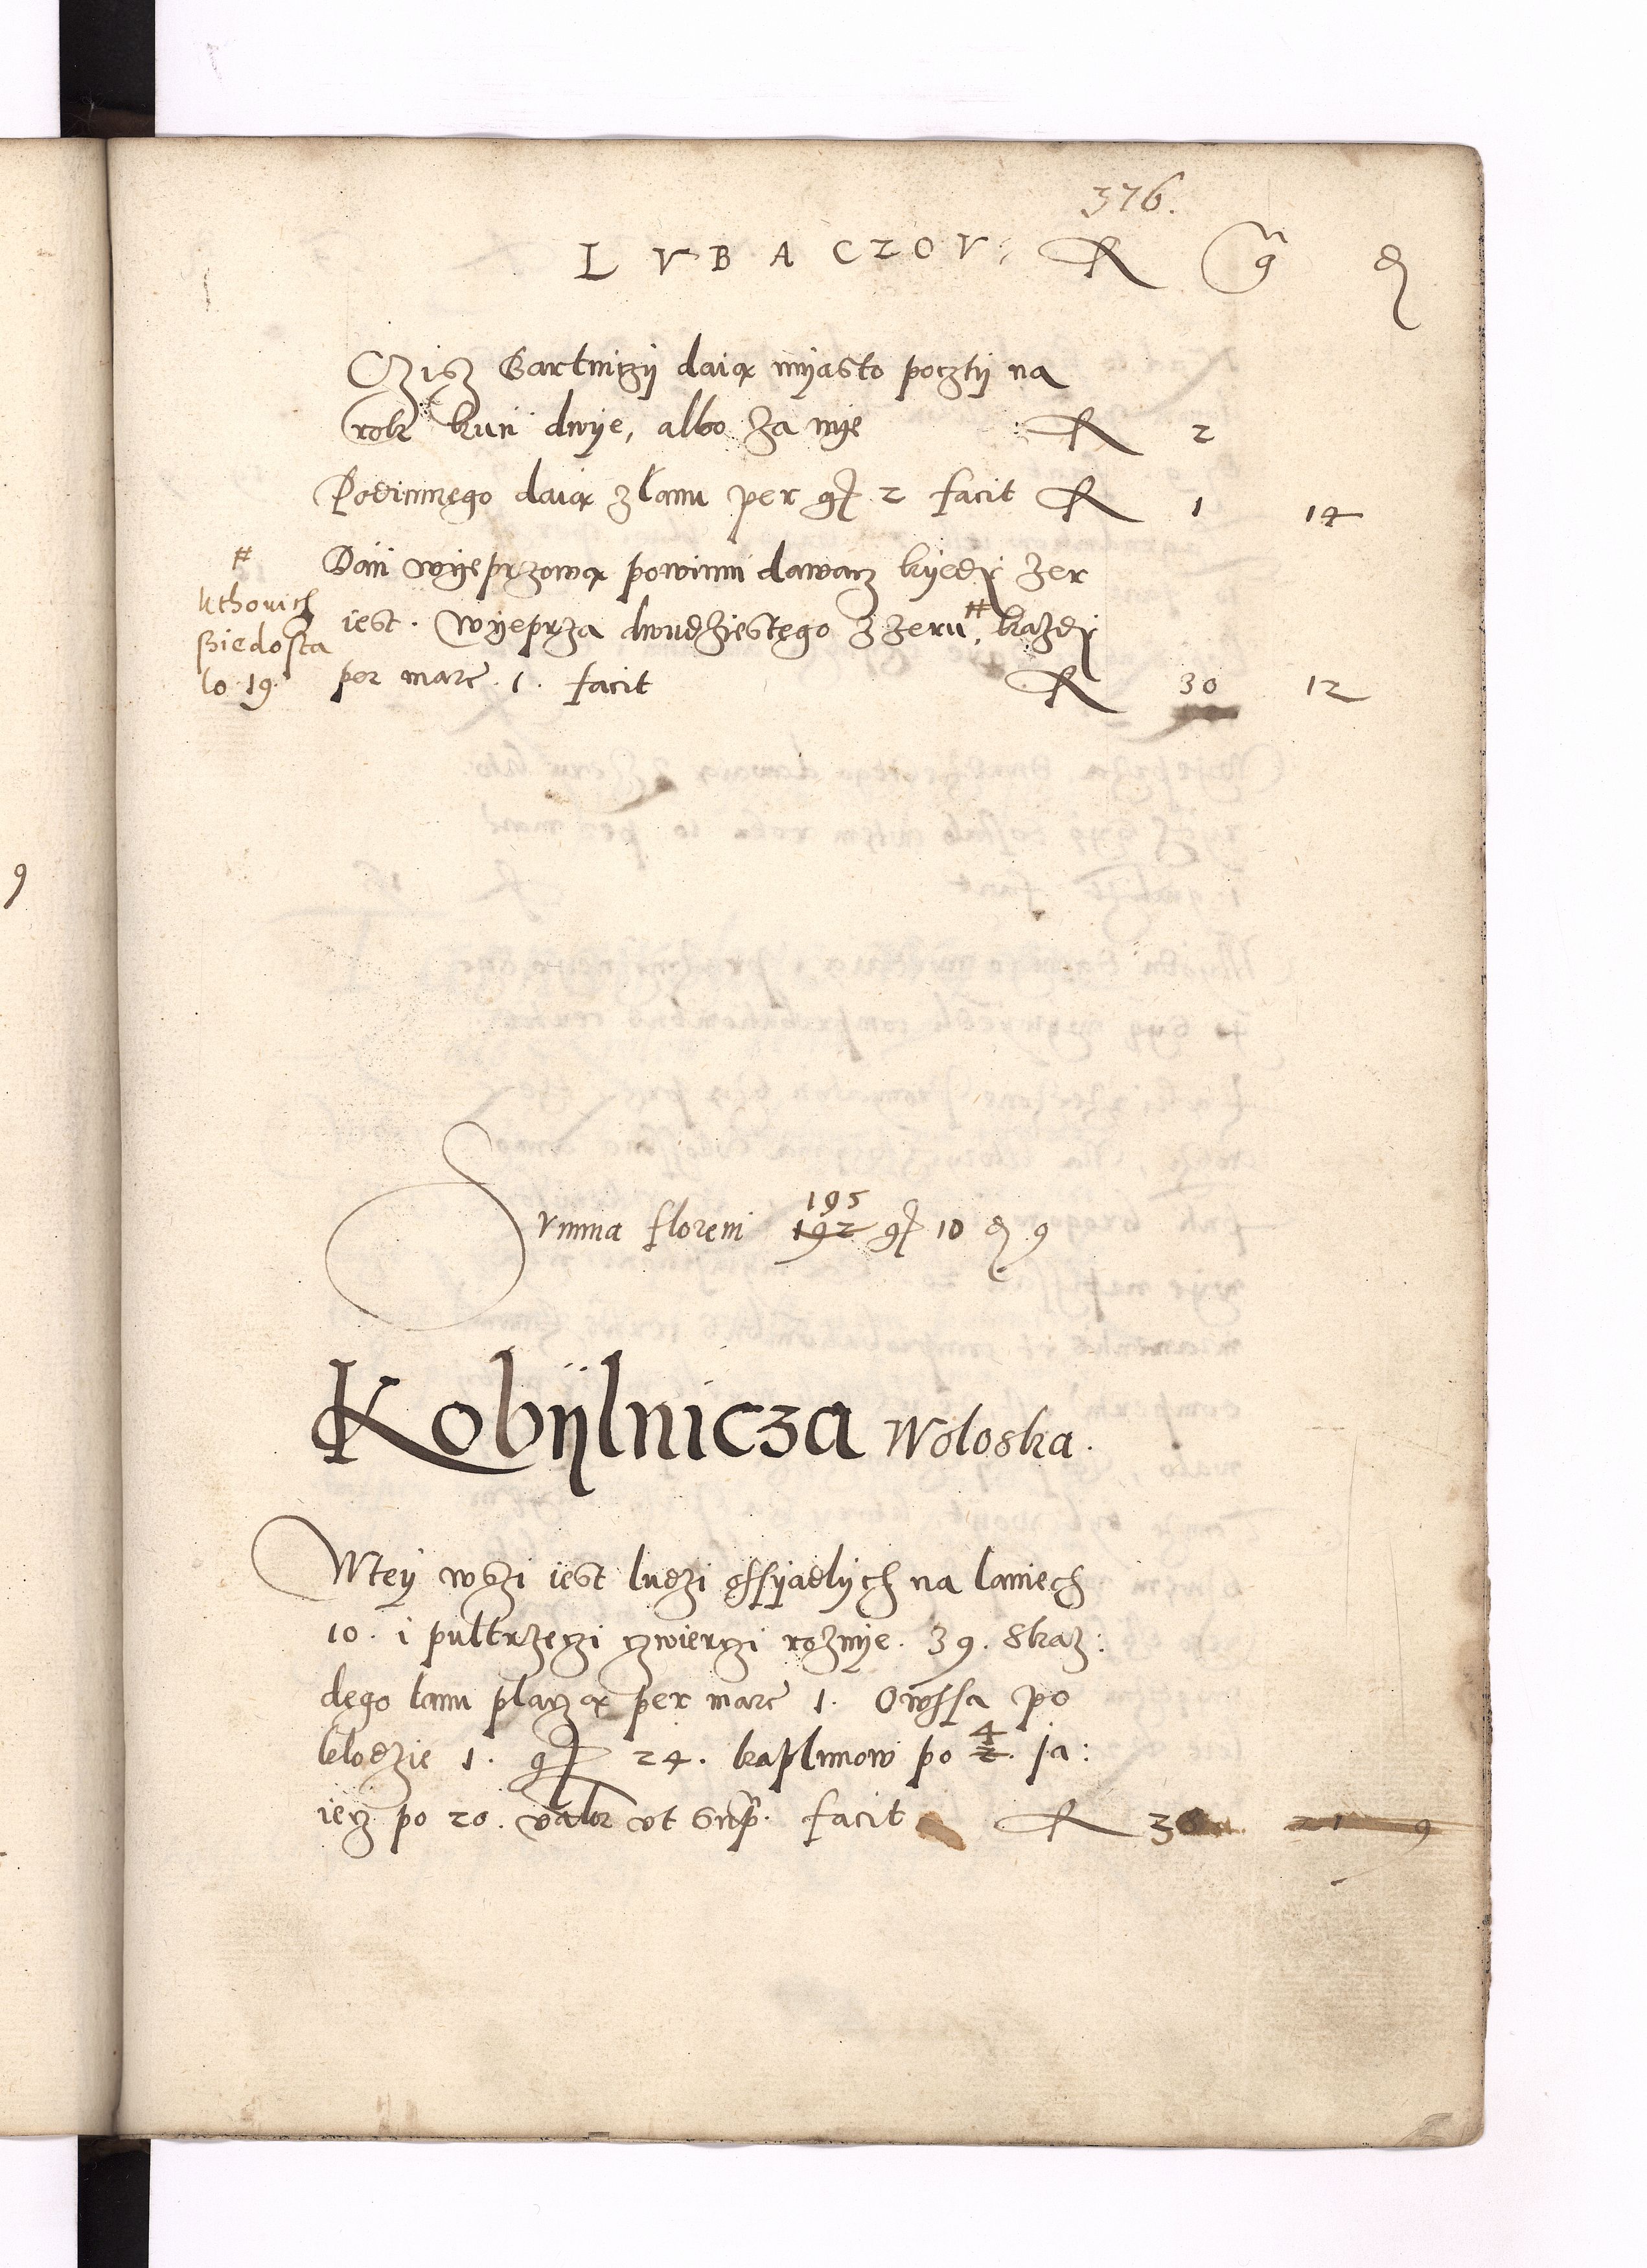 376.
LVBACZOV: R g d
Czisz Gartniczy daią myasto poczty na
rok kun dwye, albo za nye R 2
Podimnego daią z łanu per gr 2 facit R 1 14
Dań wyeprzową powinni dawacz kyedy żer
iest. Wyeprza dwudziestego z żeru #, każdy
per marc 1. facit R 30 12
#
kthorich
sie dosta
lo 19.
Summa floreni 195 192 gr 10 d 9
Kobÿlnicza Wołoska.
W tey wszi iest ludzi ossyadlych na laniech
10. i pułtrzeczi czwierczi rożnye. 39. S kaz:
dego lanu placzą per marc 1. Owssa po
klodzie 1. gr 24. kaplunow po 4 2. Ja:
iecz po 20. valor ut supr. facit R 36 21 9